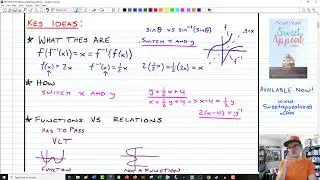 KEY IDEAS:
sinθ vs sin⁻¹(sinθ)
* WHAT THEY ARE
SWITCH X AND Y
f(f⁻¹(x)) = x = f⁻¹(f(x))
f(x) = 2x f⁻¹(x) = ½x 2(½x) = ½(2x) = x
* HOW
SWITCH X AND Y
y = ½x + 4
x = ½y + 4 => x - 4 = ½y
2(x-4) = y⁻¹
* FUNCTIONS VS RELATIONS
HAS TO PASS
VLT
FUNCTION
NOT A FUNCTION
Sweet
Appeal
AVAILABLE NOW!
www.
Sweetappealnovel
.com